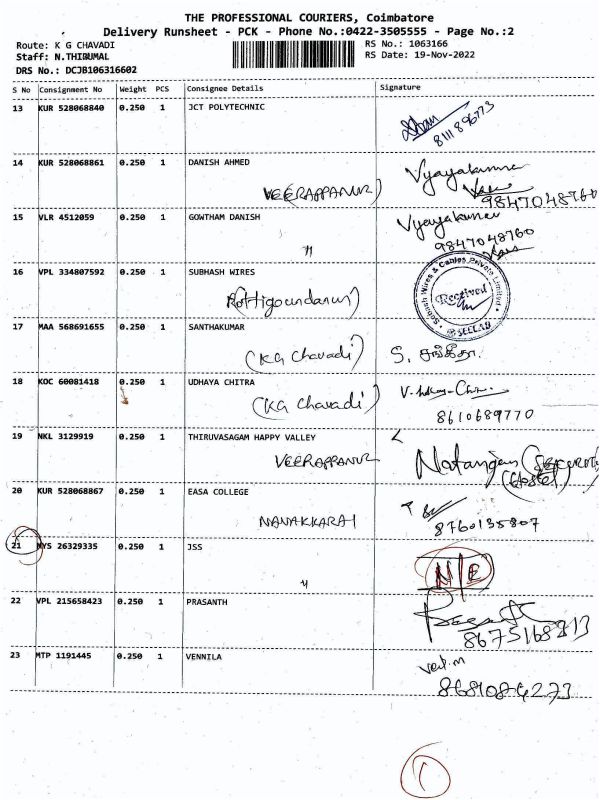 THE PROFESSIONAL COURIERS, Coimbatore
Delivery Runsheet - PCK - Phone No.:0422-3505555 - Page No.:2
Route: K G CHAVADI
RS No.: 1063166
Staff: N.THIRUMAL
RS Date: 19-Nov-2022
DRS No.: DCJB106316602
S No Consignment No Weight PCS Consignee Details Signature
13 KUR 528068840 0.250 1 JCT POLYTECHNIC
14 KUR 528068861 0.250 1 DANISH AHMED Vyayakumar
VEERAPPANUR)
9847048760
15 VLR 4512059 0.250 1 GOWTHAM DANISH Vyayakumar
9847048760
16 VPL 334807592 0.250 1 SUBHASH WIRES
Subash Wires & Cables Private Limited
Received
17 MAA 568691655 0.250 1 SANTHAKUMAR
(KG Chavadi) S. சங்கீதா.
18 KOC 60081418 0.250 1 UDHAYA CHITRA
(KG Chavadi) 8610689770
19 NKL 3129919 0.250 1 THIRUVASAGAM HAPPY VALLEY
VEERAPPANUR Natarajan
(Hostel)
20 KUR 528068867 0.250 1 EASA COLLEGE
NAVAKKARAI 8760135807
21 MYS 26329335 0.250 1 JSS
N/E
22 VPL 215658423 0.250 1 PRASANTH
8675168213
23 MTP 1191445 0.250 1 VENNILA
8681084273